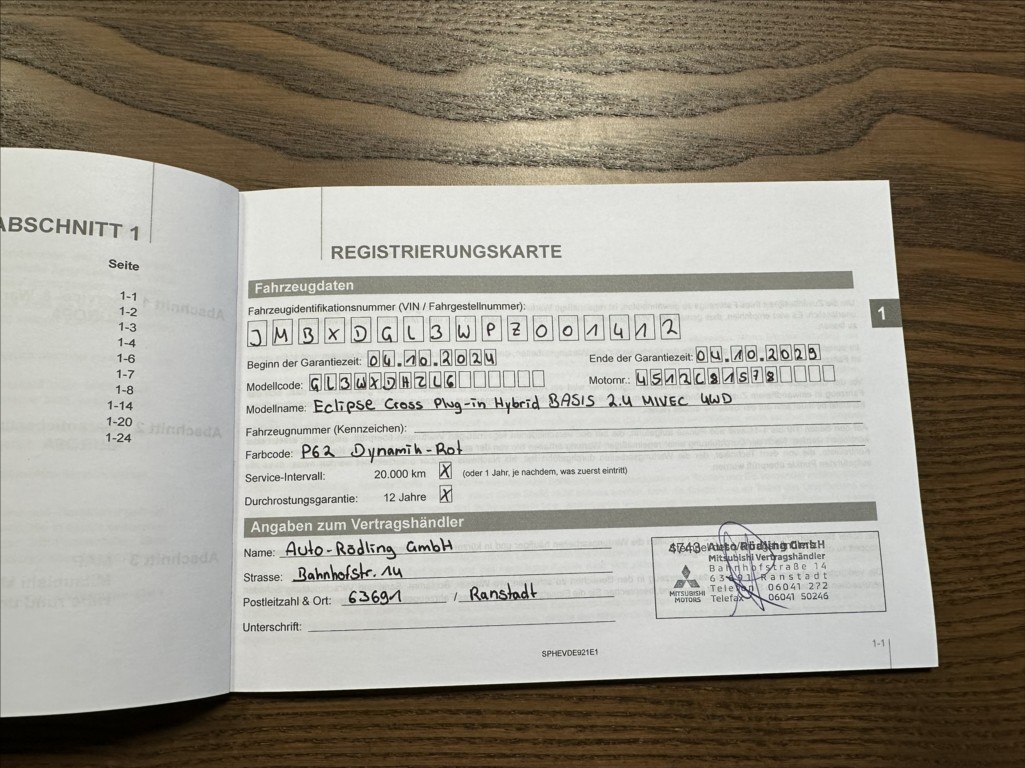 ABSCHNITT 1
Seite
1-1
1-2
1-3
1-4
1-6
1-7
1-8
1-14
1-20
1-24
REGISTRIERUNGSKARTE
Fahrzeugdaten
1
Fahrzeugidentifikationsnummer (VIN / Fahrgestellnummer):
JMBXDGL3WPZ001412
Beginn der Garantiezeit: 04.10.2024 Ende der Garantiezeit: 04.10.2029
Modellcode: GL3WXDHZL6 Motornr.: 4S12CB1578
Modellname: Eclipse Cross Plug-in Hybrid BASIS 2.4 MIVEC 4WD
Fahrzeugnummer (Kennzeichen):
Farbcode: P62 Dynamik-Rot
Service-Intervall: 20.000 km X (oder 1 Jahr, je nachdem, was zuerst eintritt)
Durchrostungsgarantie: 12 Jahre X
Angaben zum Vertragshändler
Name: Auto-Rödling GmbH
Strasse: Bahnhofstr. 14
Postleitzahl & Ort: 63691 / Ranstadt
Unterschrift:
4743 Auto Rödling GmbH
Mitsubishi Vertragshändler
Bahnhofstraße 14
63691 Ranstadt
Telefon 06041 272
Telefax 06041 50246
MITSUBISHI
MOTORS
SPHEVDE921E1
1-1